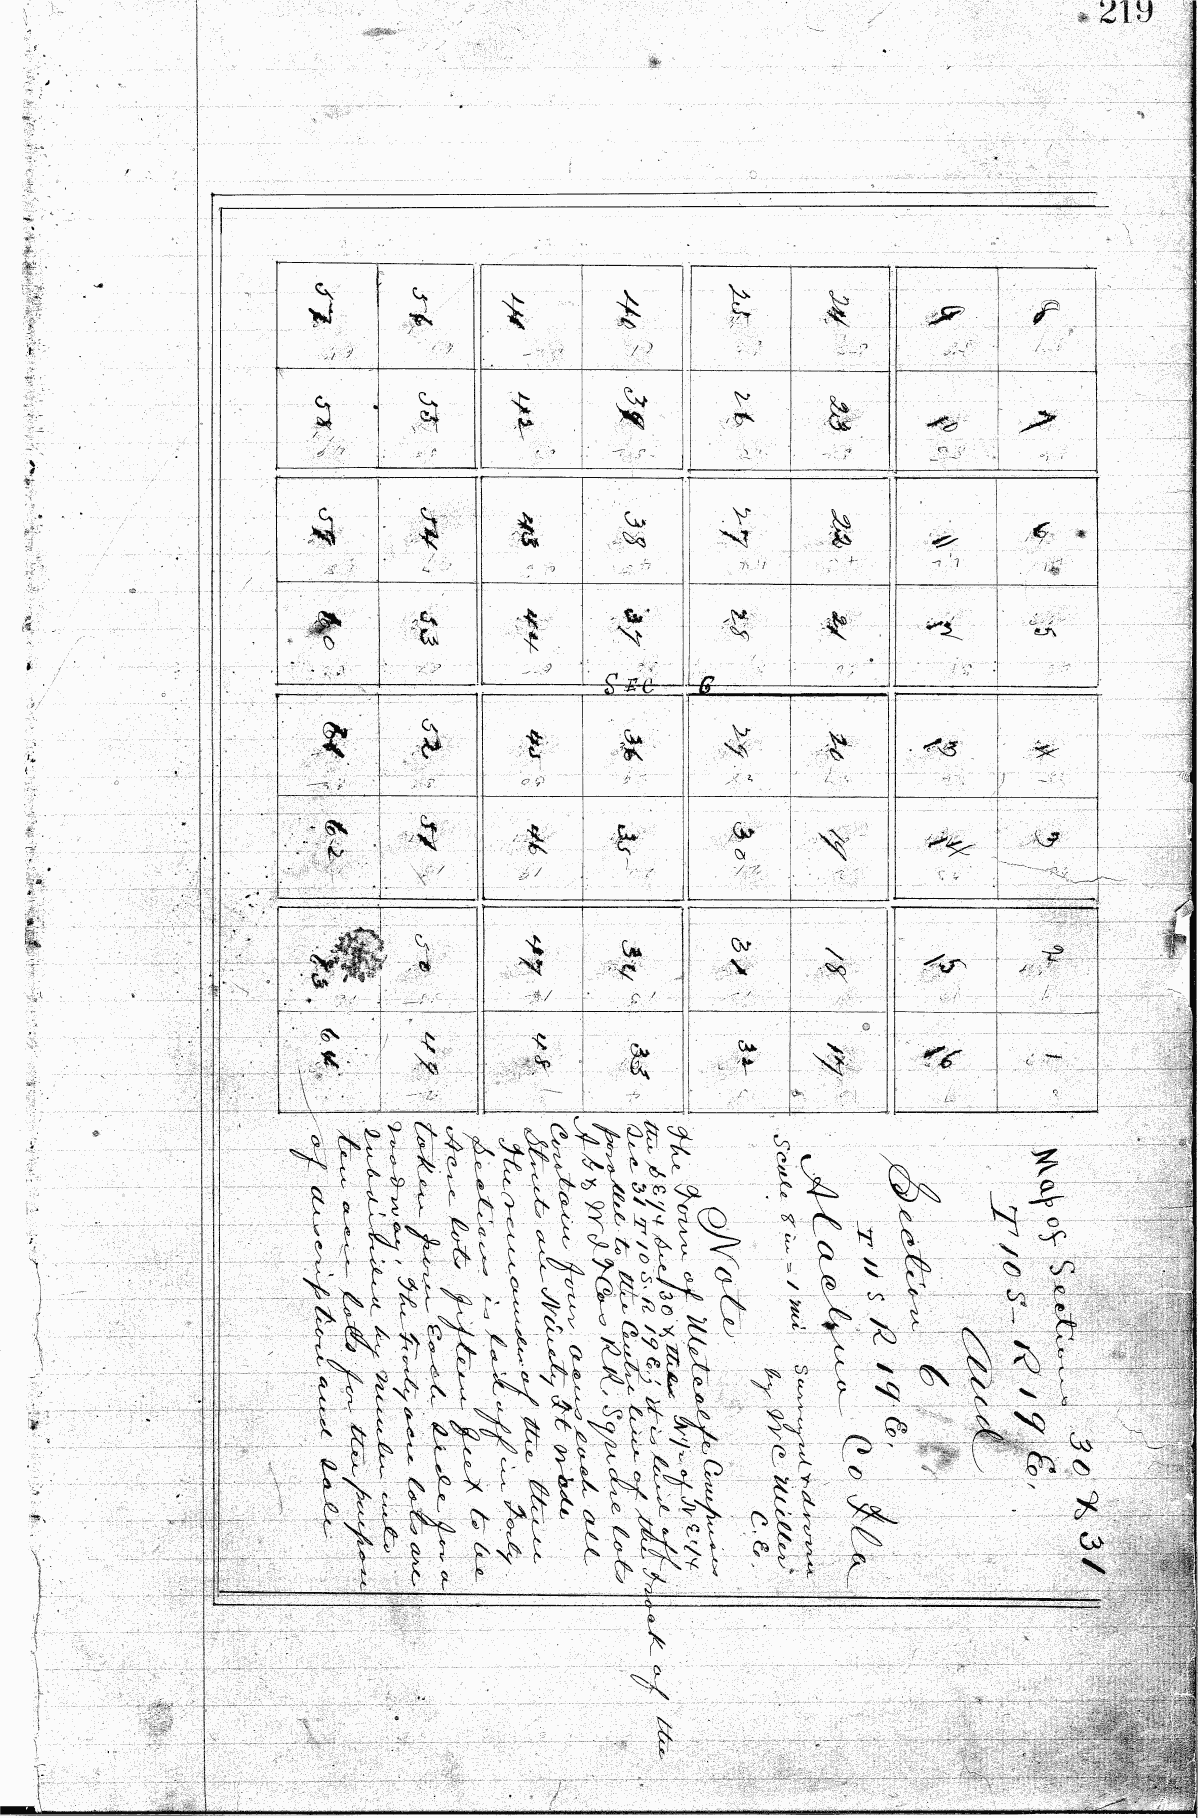 219
8 7 6 5 4 3 2 1
9 10 11 12 13 14 15 16
24 23 22 21 20 19 18 17
25 26 27 28 29 30 31 32
SEC 6
40 39 38 37 36 35 34 33
41 42 43 44 45 46 47 48
56 55 54 53 52 51 50 49
57 58 59 60 61 62 63 64
Map of Sections 30 & 31
T 10 S - R 19 E.
And
Section 6
T 11 S R 19 E.
Alachua Co Fla
Scale 8 in = 1 mi Surveyed & drawn
by W C Miller
C.E.
Note
The Town of Metcalfe Comprises
the SE 1/4 Sec 30 & the N 1/2 of NE 1/4
Sec 31 T 10 S. R 19 E; it is laid off
parallel to the Centre line of the Track of the
R.R. Square lots
Contain four acres each all
Streets are Ninety Ft Wide
The remainder of the three
Sections is laid off in Forty
Acre lots fifteen feet to be
taken from Each side for a
roadway; The Forty acre lots are
subdivided by number into
ten acre lots for the purpose
of description and sale